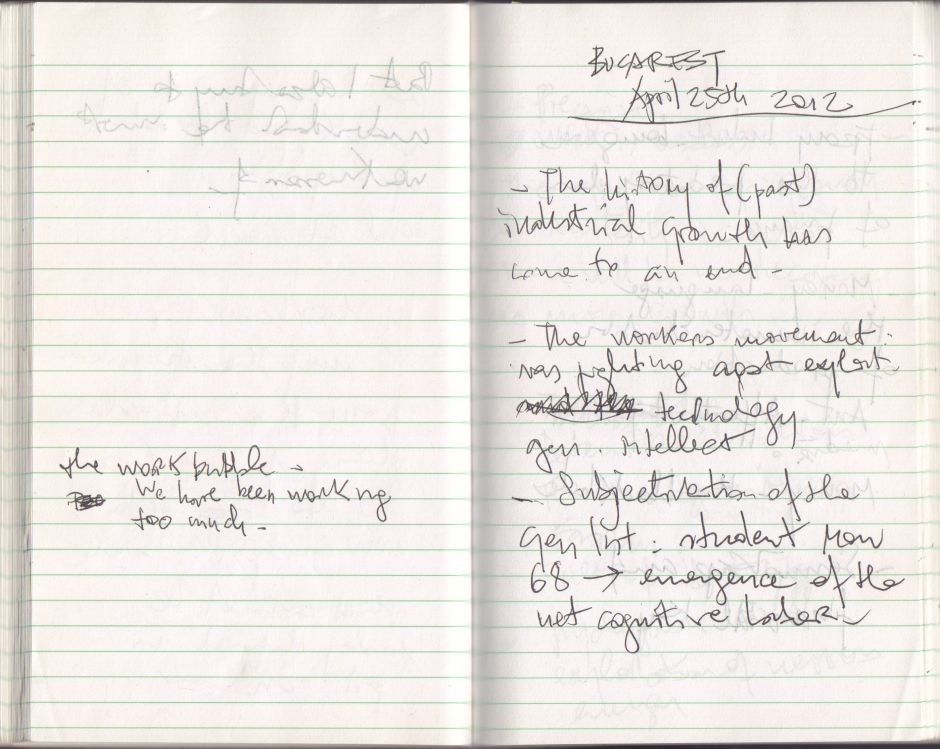 the work bubble -
We have been working
too much -
BUCAREST
April 25th 2012
- The history of (past)
industrial growth has
come to an end -
- The workers movement
was fighting agst exploit.
technology
gen. intellect
- Subjectivation of the
Gen Int : student mov
68 → emergence of the
net cognitive labor -